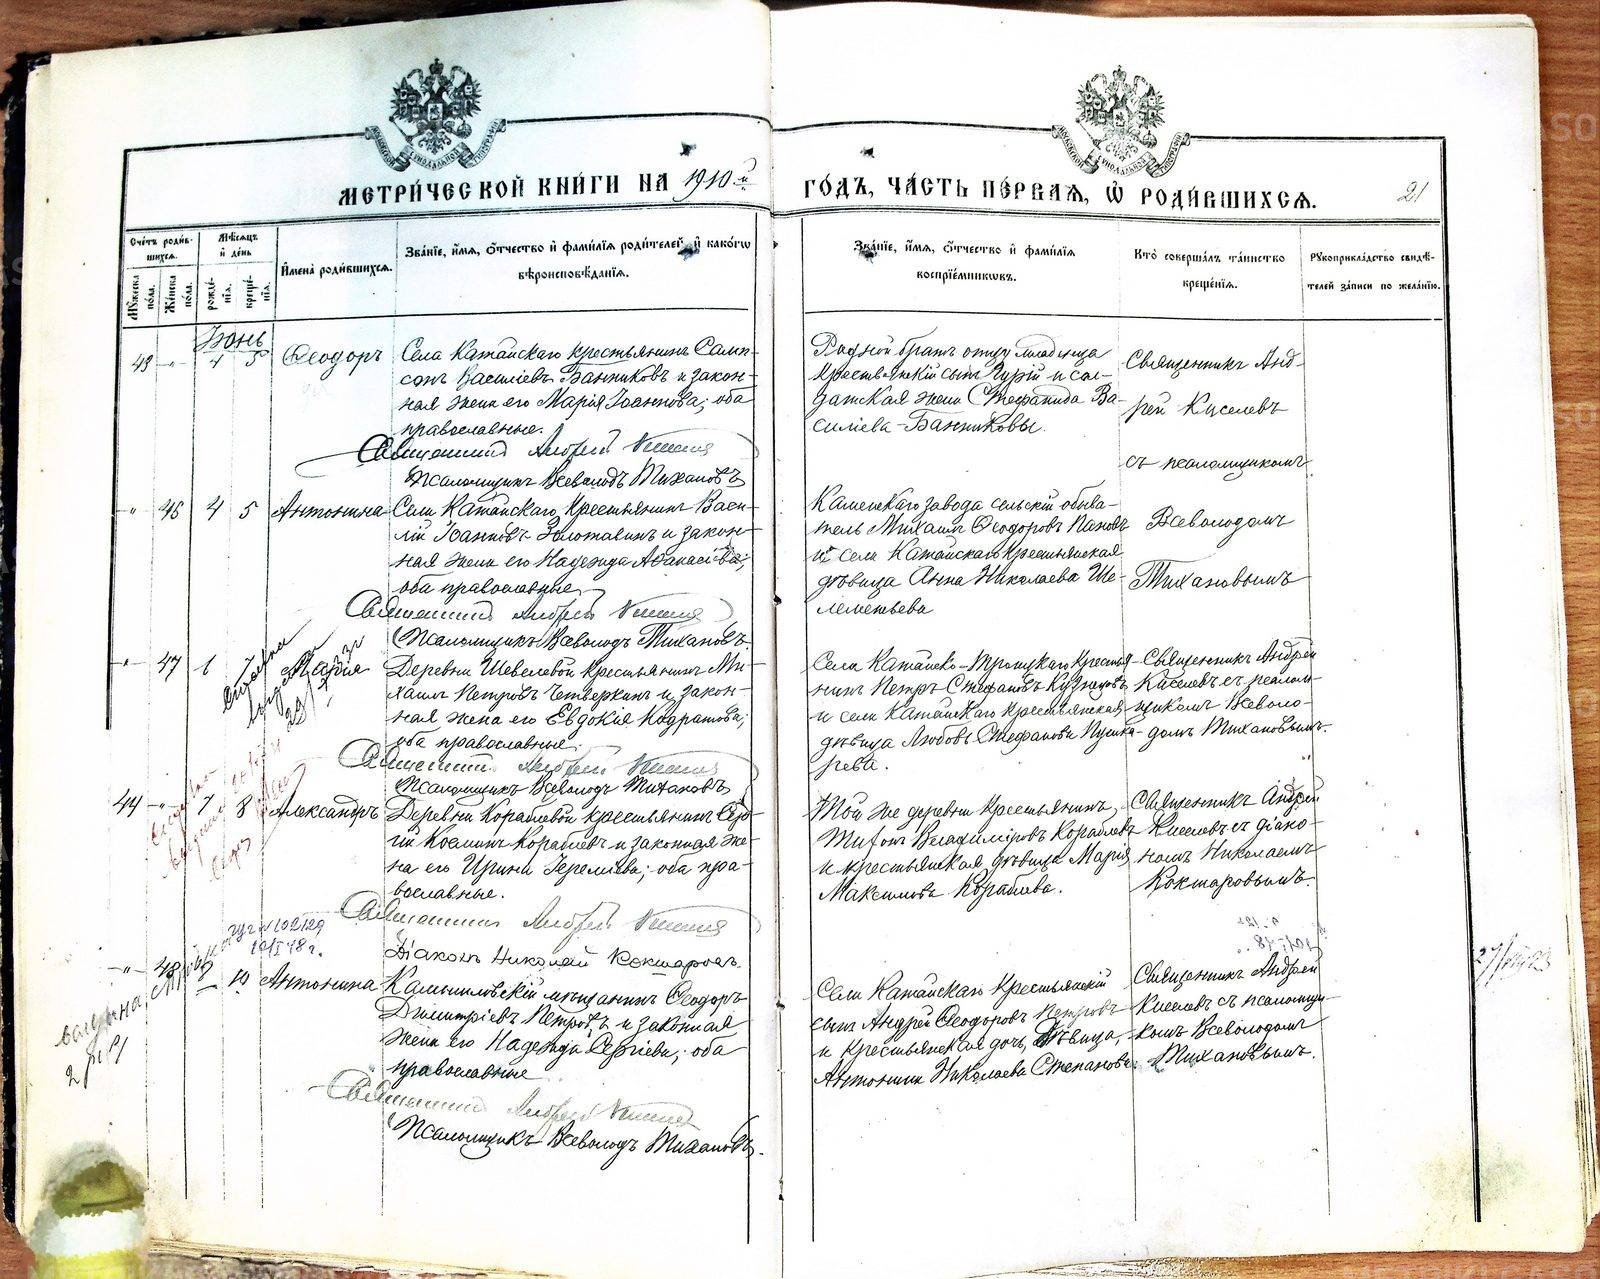 МЕТРИ́ЧЕСКОЙ КНИ́ГИ НА 1910й ГО́ДЪ, ЧА́СТЬ ПЕ́РВАЯ, Ѡ҆ РОДИ́ВШИХСЯ.
21
Сче́тъ роди́вшихся.
Мꙋ́жеска по́ла.
Же́нска по́ла.
Мѣ́сяцъ и де́нь
рожде́нїя.
креще́нїя.
И҆мена̀ роди́вшихся.
Зва́нїе, и҆́мя, ѻ҆́тчество и҆ фами́лїя роди́телей, и҆ како́гѡ
вѣроисповѣ́данїя.
Зва́нїе, и҆́мя, ѻ҆́тчество и҆ фами́лїя
воспрїе́мниковъ.
Кто̀ соверша́лъ та́инство
креще́нїя.
Рꙋкоприкла́дство свидѣ́-
телей за́писи по жела́нїю.
Іюнь
43 -„- 4 5 Ѳеодоръ
Села Катайскаго крестьянинъ Самп-
сонъ Василіевъ Банниковъ и закон-
ная жена его Марія Іоаннова; оба
православные.
Священникъ Андрей Киселевъ
Псаломщикъ Всеволодъ Тихановъ
Родной братъ отцу младенца
Крестьянскій сынъ Гурій и сол-
датская жена Стефанида Ва-
силіева Банниковы.
Священникъ Анд-
рей Киселевъ
съ псаломщикомъ
Всеволодомъ
Тихановымъ
-„- 46 4 5 Антонина
Села Катайскаго Крестьянинъ Васи-
лій Іоанновъ Золотавинъ и закон-
ная жена его Надежда Аѳанасіева;
оба православные.
Священникъ Андрей Киселевъ
Псаломщикъ Всеволодъ Тихановъ.
Каменскаго завода сельскій обыва-
тель Михаилъ Ѳеодоровъ Пановъ
и села Катайскаго Крестьянская
дѣвица Анна Николаева Ше-
леметьева
-„- 47 Марія
Деревни Шевелевой Крестьянинъ Ми-
хаилъ Петровъ Четверкинъ и закон-
ная жена его Евдокія Кодратова;
оба православные.
Священникъ Андрей Киселевъ
Псаломщикъ Всеволодъ Тихановъ
Села Катайско-Троицкаго Крестья-
нинъ Петръ Стефановъ Кузнецовъ
и села Катайскаго крестьянская
дѣвица Любовь Стефанова Пушка-
рева.
Священникъ Андрей
Киселевъ съ псалом-
щикомъ Всеволо-
домъ Тихановымъ.
44 -„- 7 8 Александръ
Деревни Кораблевой крестьянинъ Сер-
гій Косминъ Кораблевъ и законная же-
на его Ирина Іереміева; оба пра-
вославные.
Священникъ Андрей Киселевъ
Діаконъ Николай Кокшаровъ.
Той же деревни Крестьянинъ
Тифонъ Владиміровъ Кораблевъ
и крестьянская дѣвица Марія
Максимова Кораблева.
Священникъ Андрей
Киселевъ съ діако-
номъ Николаемъ
Кокшаровымъ.
-„- 48 9 10 Антонина
Камышловскій мѣщанинъ Ѳеодоръ
Димитріевъ Петровъ и законная
жена его Надежда Сергіева; оба
православные
Священникъ Андрей Киселевъ
Псаломщикъ Всеволодъ Тихановъ.
Села Катайскаго Крестьянскій
сынъ Андрей Ѳеодоровъ Петровъ
и Крестьянская дочь, дѣвица,
Антонина Николаева Степанова.
Священникъ Андрей
Киселевъ съ псаломщи-
комъ Всеволодомъ
Тихановымъ.